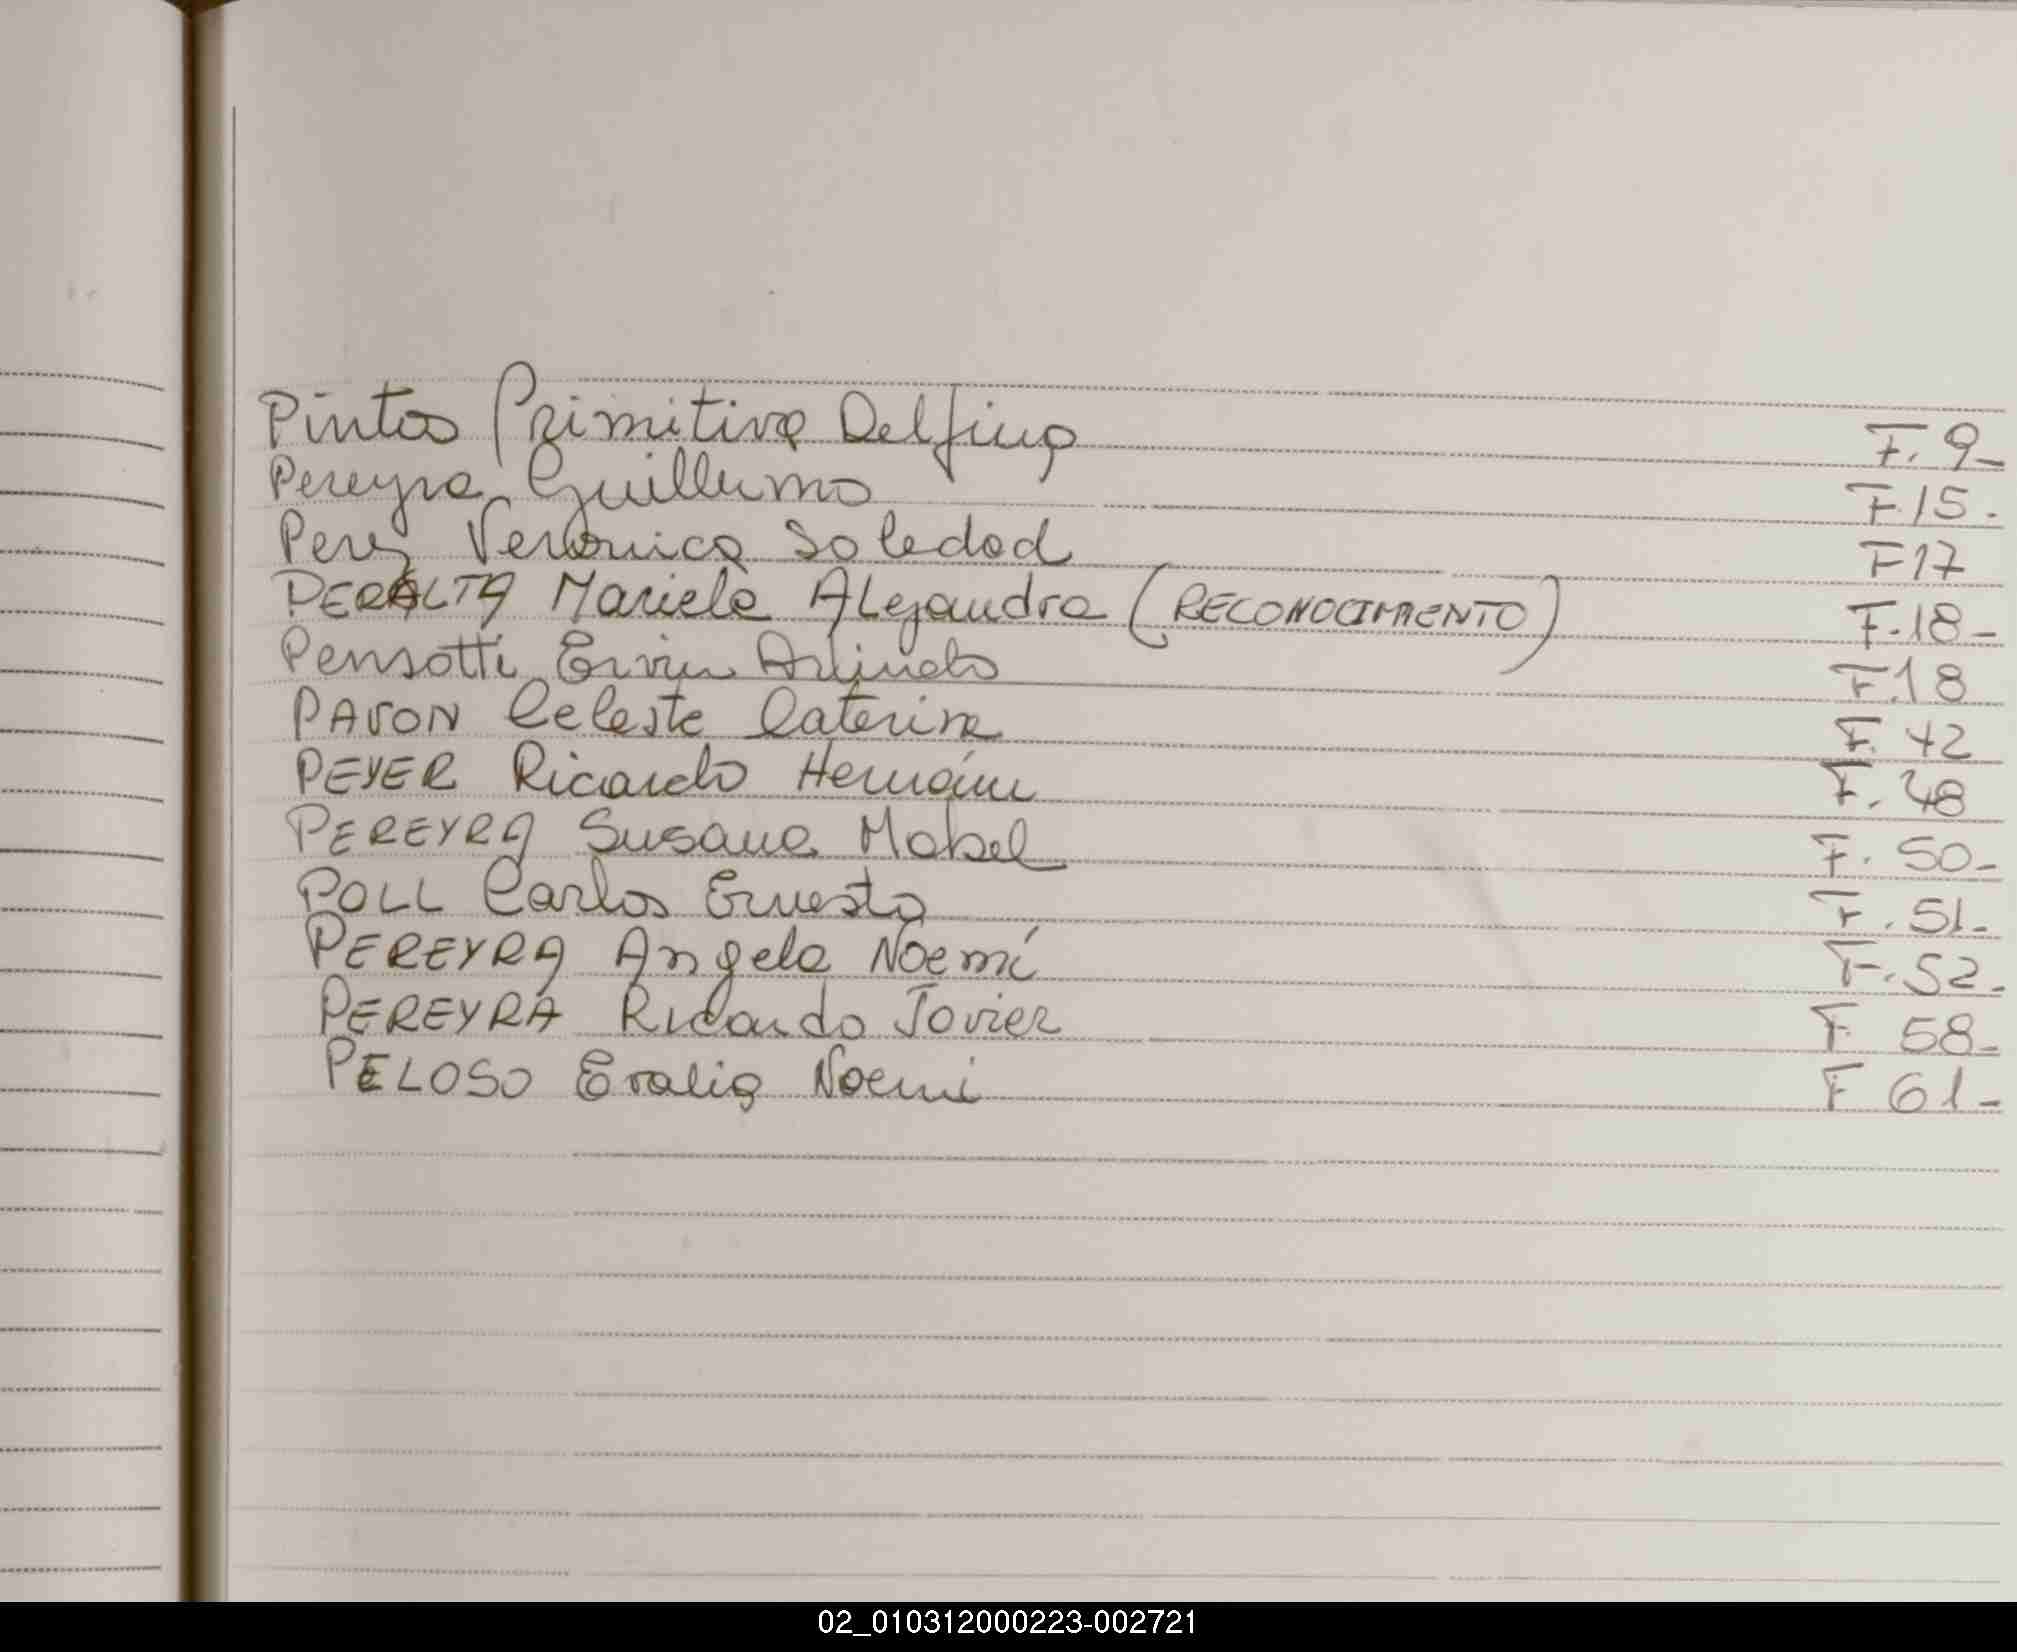 Pintos Primitiva Delfina F. 9-
Pereyra Guillermo F.15.
Perez Veronica Soledad F17
PERALTA Mariela Alejandra (RECONOCIMIENTO) F.18-
Pensotti Ervin Arlindo F.18
PAVON Celeste Caterina F. 42
PEYER Ricardo Hernán F. 48
PEREYRA Susana Mabel F. 50-
POLL Carlos Ernesto F. 51-
PEREYRA Angela Noemí F. 52-
PEREYRA Ricardo Javier F 58-
PELOSO Evalia Noemi F 61-
02_010312000223-002721